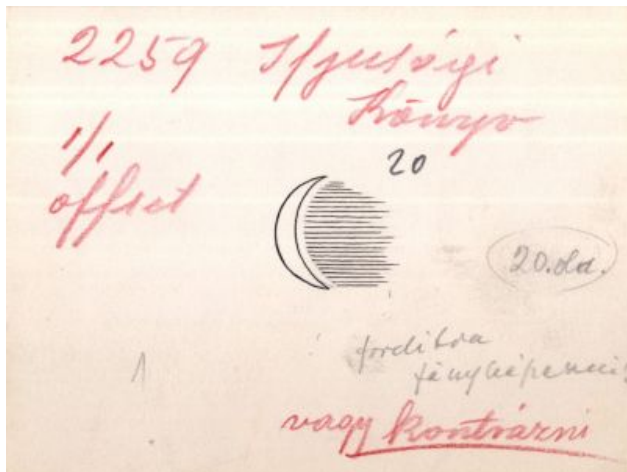 2259 Ifjusági
Könyv
1/1
offset
20
20.old.
forditva
fényképezni
1
vagy kontrázni